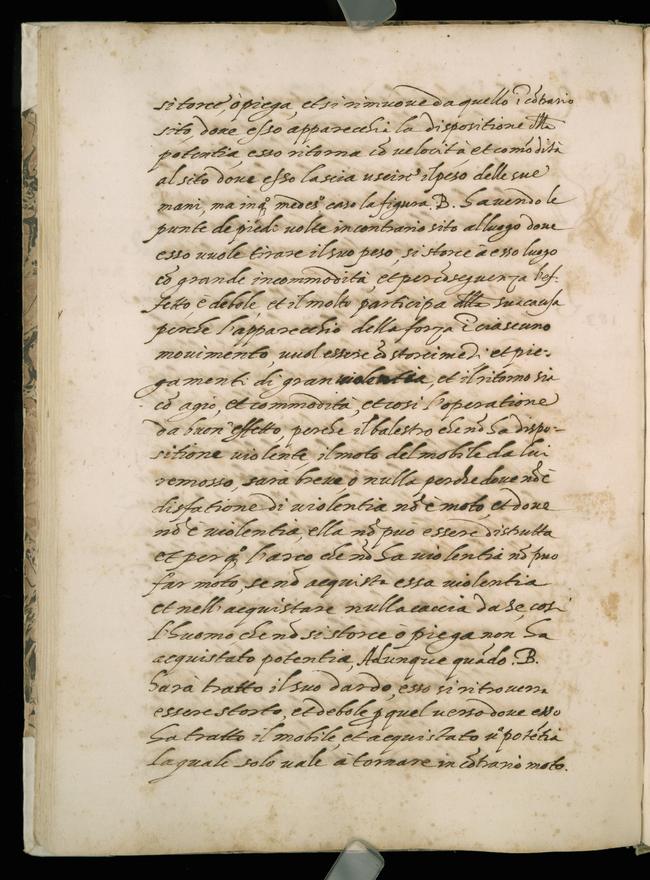 si torce, ò piega, et si rimuove da quello ĩ cõtrario
sito, dove esso apparecchia la dispositione dlla
potentia esso ritorna cõ velocità et comõdità
al sito dove esso lascia uscire il peso delle sue
mani, ma in qᵒ medesᵒ caso la figura .B. havendo le
punte de piedi volte in contrario sito al luogo dove
esso vuole tirare il suo peso, si storce a esso luogo
cõ grande incommodità, et per cõseguenza l'ef-
fetto è debole, et il moto participa dlla sua causa
perche l'apparecchio della forza ĩ ciascuno
movimento, vuol essere cõ storcimẽti et pie-
gamenti di gran violentia, et il ritorno sia
cõ agio, et commodità, et cosi l'operatione
da buon' effetto, perche il balestro che nõ ha dispo-
sitione violente, il moto del mobile da lui
remosso, sarà breve o nulla perche dove nõ è
disfatione di violentia nõ è moto, et dove
nõ è violentia, ella nõ puo essere distrutta
et per qᵒ l'arco che nõ ha violentia nõ puo
far moto, se nõ acquista essa violentia
et nell'acquistare nulla caccia da se, cosi
l'huomo che nõ si storce ò piega non ha
acquistato potentia, Adunque quãdo .B.
harà tratto il suo dardo, esso si ritroverra
essere storto, et debole p quel verso dove esso
ha tratto il mobile, et acquistato uᵃ potẽtia
la quale solo vale à tornare in cõtrario moto.